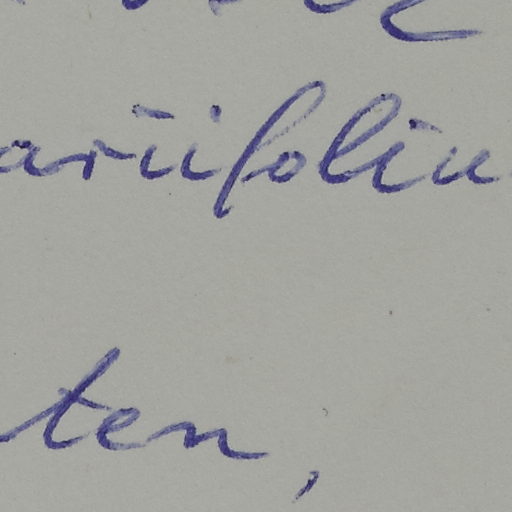 ariifoliu
ten,